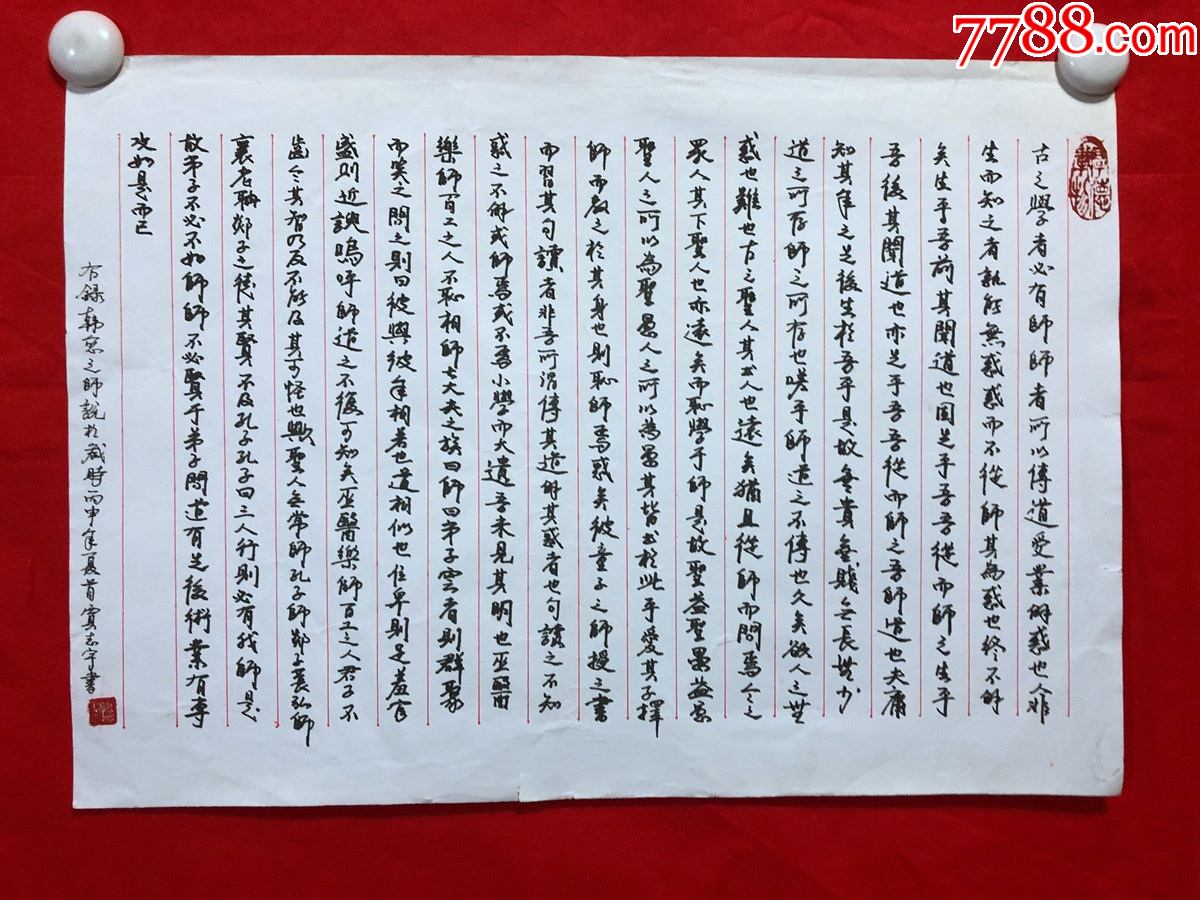 7788.com
厚德載物
古之學者必有師師者所以傳道受業解惑也人非
生而知之者孰能無惑惑而不從師其為惑也終不解
矣生乎吾前其聞道也固先乎吾吾從而師之生乎
吾後其聞道也亦先乎吾吾從而師之吾師道也夫庸
知其年之先後生於吾乎是故無貴無賤無長無少
道之所存師之所存也嗟乎師道之不傳也久矣欲人之無
惑也難也古之聖人其出人也遠矣猶且從師而問焉今之
眾人其下聖人也亦遠矣而恥學于師是故聖益聖愚益愚
聖人之所以為聖愚人之所以為愚其皆出於此乎愛其子擇
師而教之於其身也則恥師焉惑矣彼童子之師授之書
而習其句讀者非吾所謂傳其道解其惑者也句讀之不知
惑之不解或師焉或不焉小學而大遺吾未見其明也巫醫
樂師百工之人不恥相師士大夫之族曰師曰弟子雲者則群聚
而笑之問之則曰彼與彼年相若也道相似也位卑則足羞官
盛則近諛嗚呼師道之不復可知矣巫醫樂師百工之人君子不
齒今其智乃反不能及其可怪也歟聖人無常師孔子師郯子萇弘師
襄老聃郯子之徒其賢不及孔子孔子曰三人行則必有我師是
故弟子不必不如師師不必賢于弟子聞道有先後術業有專
攻如是而已
右錄韓愈之師說於歲時丙申年夏首賓志宇書